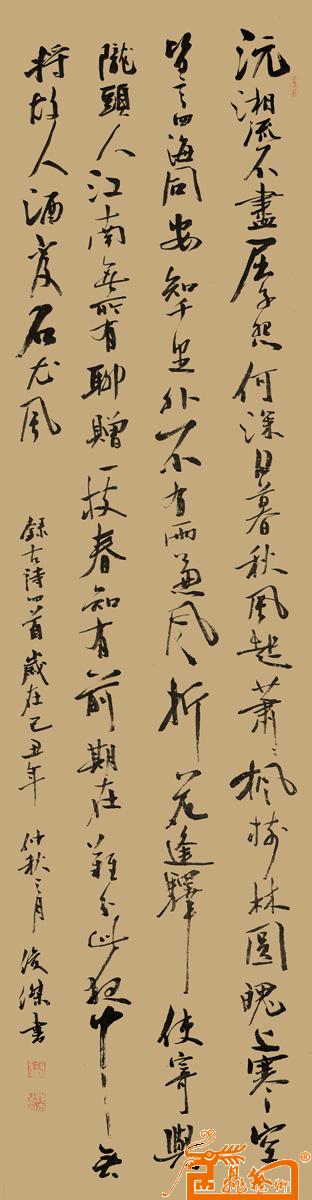 沅湘流不盡屈子怨何深日暮秋風起蕭蕭楓樹林圓魄上寒空
皆言四海同安知千里外不有雨兼風折花逢驛使寄與
隴頭人江南無所有聊贈一枝春知有前期在難分此夜中無
將故人酒不及石尤風
錄古詩四首歲在己丑年仲秋之月俊傑書